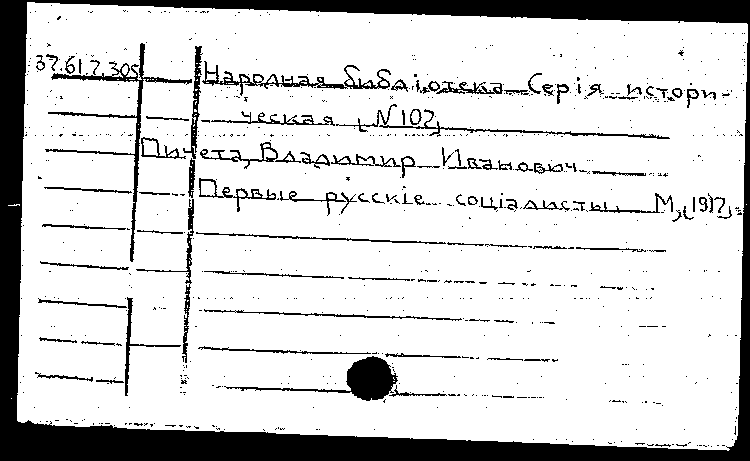 37.61.7.305 Народная библіотека Серія истори-
ческая [N 102]
Пичета, Владимир Иванович
Первые русскіе соціалисты. М,[1917]